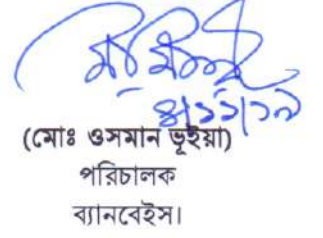 ৪/১১/১৯
(মোঃ ওসমান ভূইয়া)
পরিচালক
ব্যানবেইস।